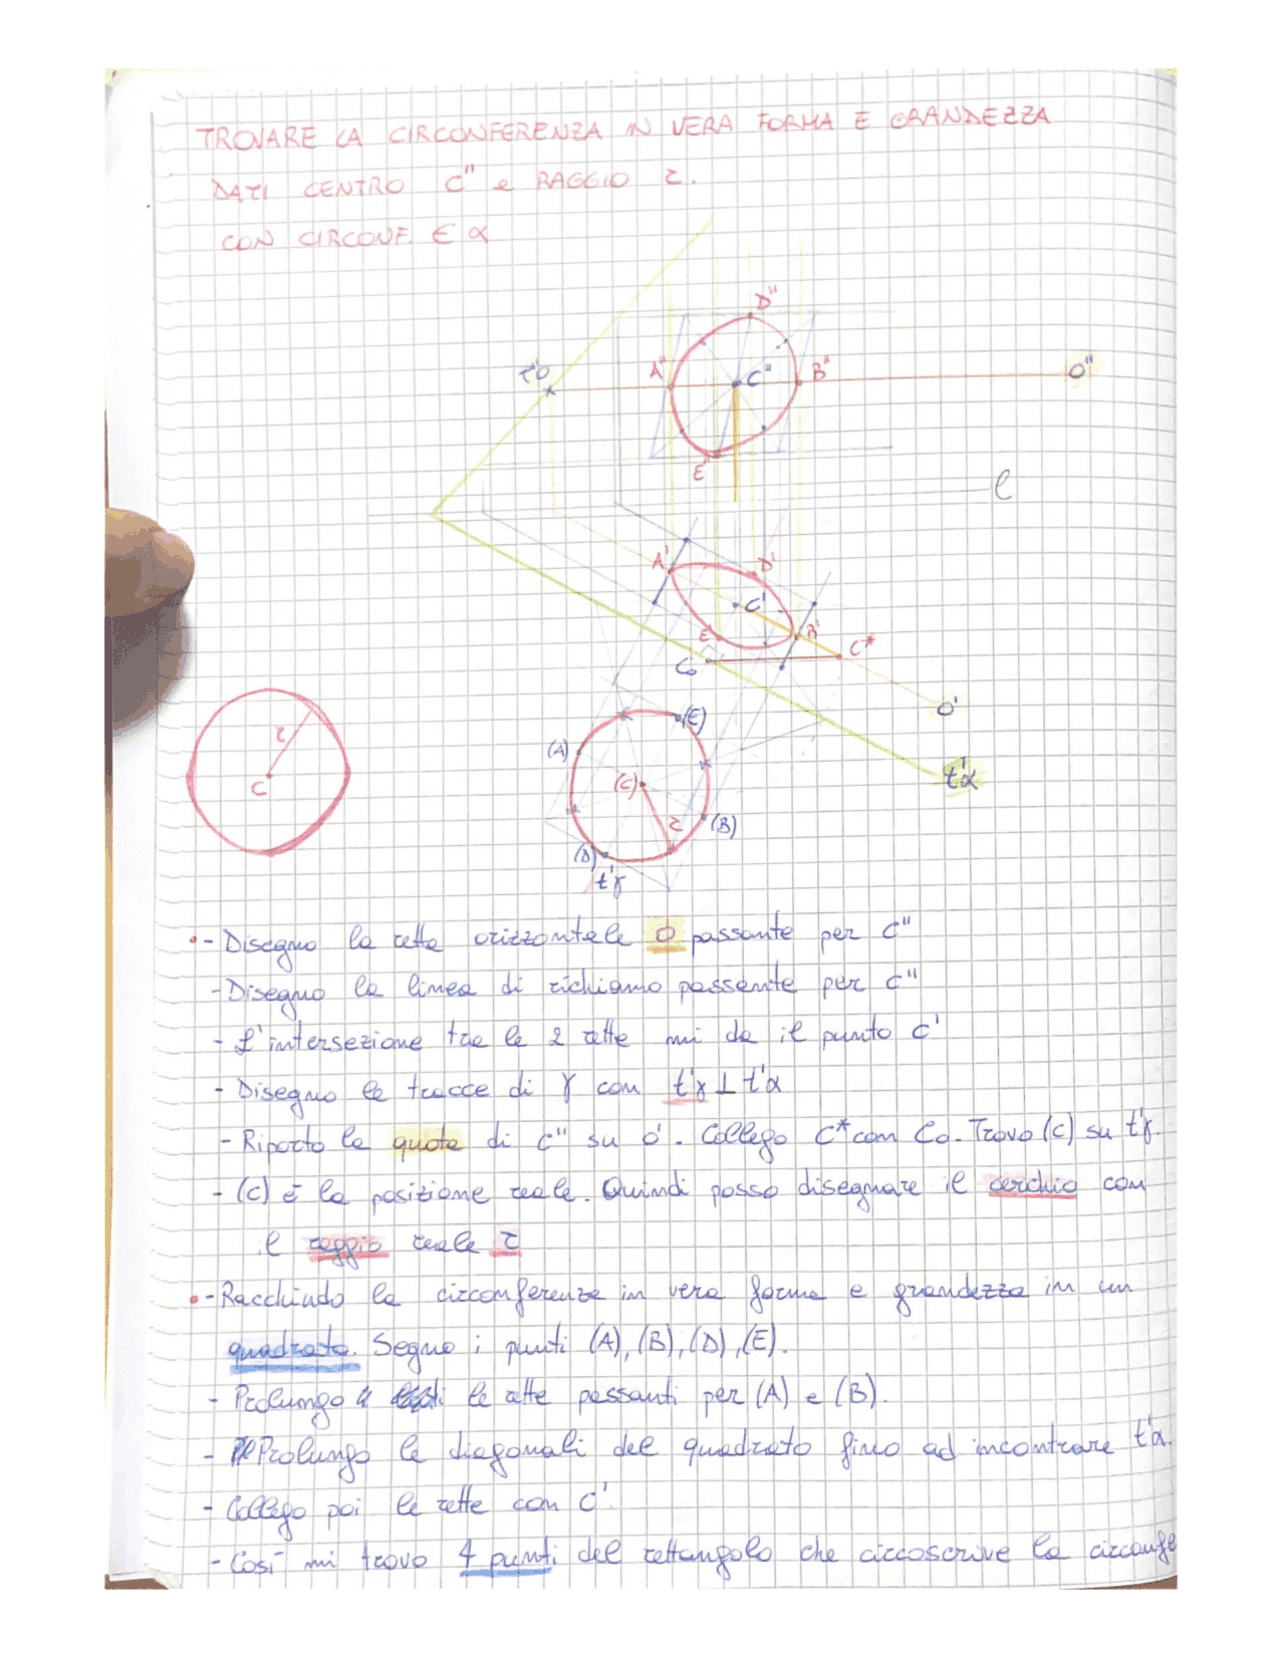 TROVARE LA CIRCONFERENZA IN VERA FORMA E GRANDEZZA
DATI CENTRO C" e RAGGIO r.
CON CIRCONF. ∈ α
D"
t"o
A"
C"
B"
O"
E"
l
A'
D'
C'
E'
B'
C*
C₀
O'
t'α
(E)
(A)
(C)
r
(B)
(D)
t'γ
r
C
- Disegno la retta orizzontale o passante per C"
- Disegno la linea di richiamo passante per C"
- L'intersezione tra le 2 rette mi da il punto C'
- Disegno le tracce di γ con t'γ ⊥ t'α
- Riporto la quota di C" su o'. Collego C* con C₀. Trovo (C) su t'γ.
- (C) è la posizione reale. Quindi posso disegnare il cerchio con
il raggio reale r
- Racchiudo la circonferenza in vera forma e grandezza in un
quadrato. Segno i punti (A), (B), (D), (E).
- Prolungo le rette passanti per (A) e (B).
- Prolungo le diagonali del quadrato fino ad incontrare t'α.
- Collego poi le rette con C'.
- Così mi trovo 4 punti del rettangolo che circoscrive la circonfe